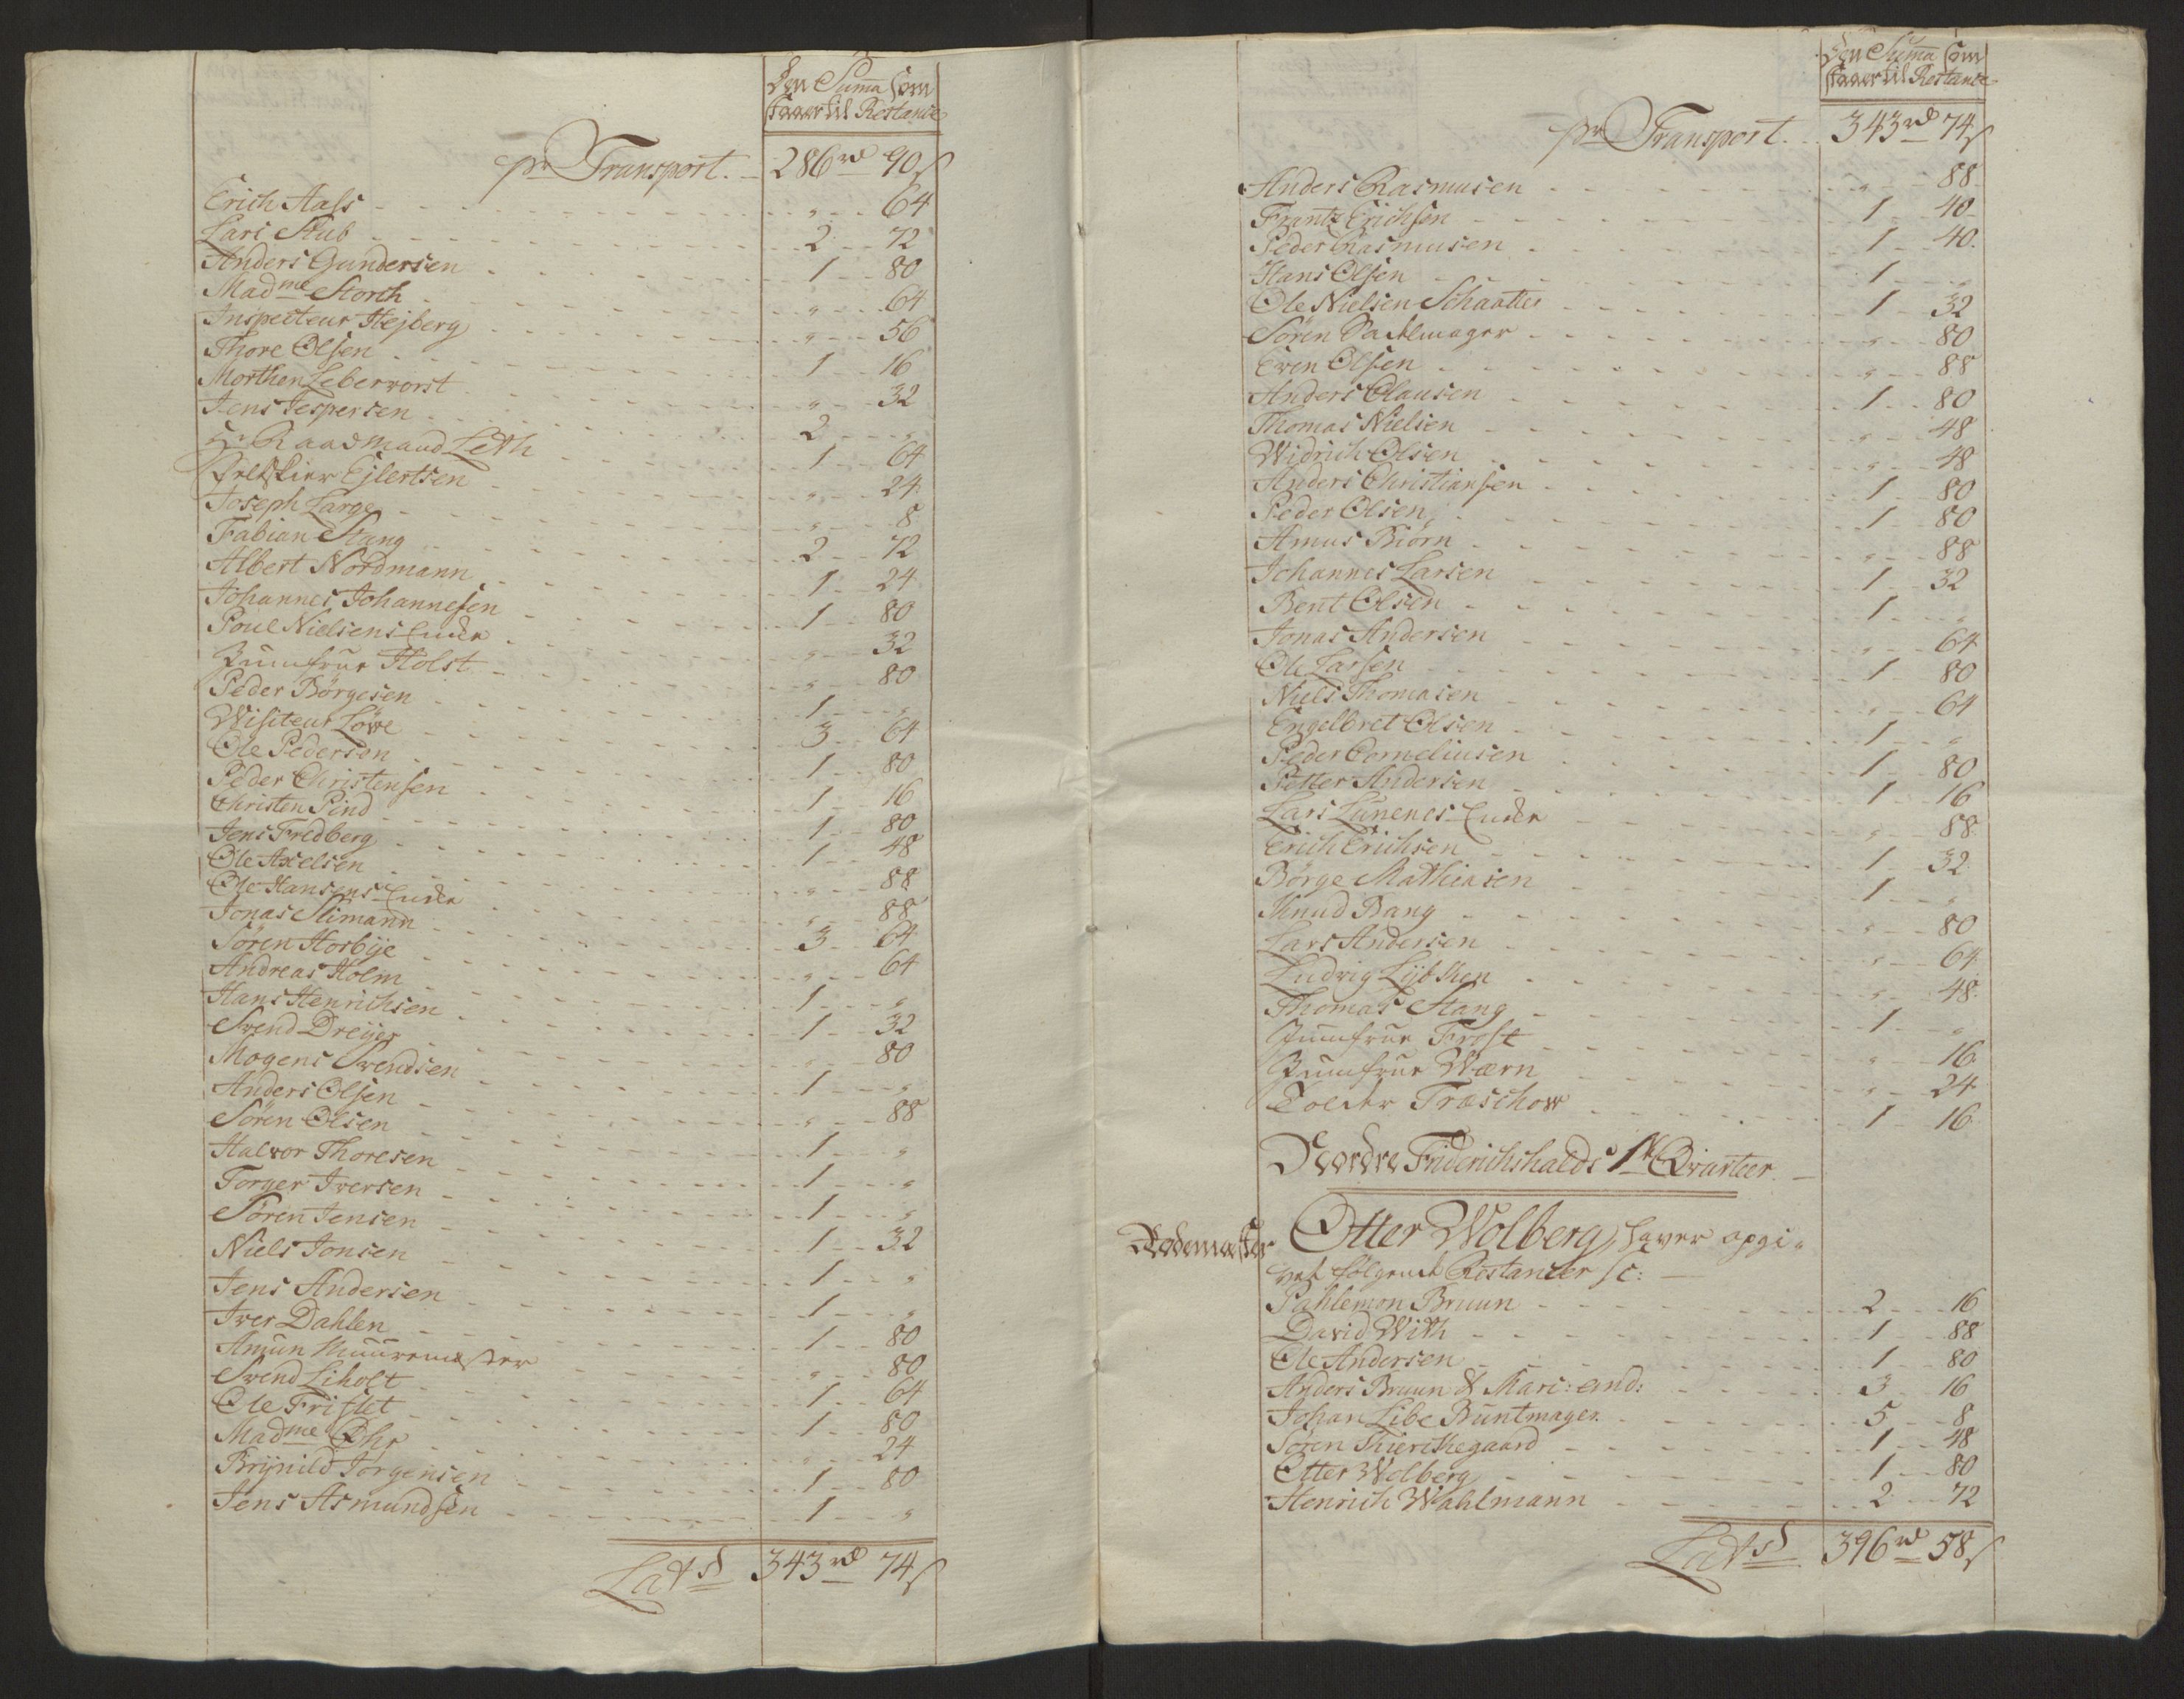 Den Summa som
staaer til Restance
pr Transport. 286 rd 90 s
Erich Aass „ 64
Lars Stub 2 72
Anders Gundersen 1 80
Madme Storch „ 64
Inspecteur Hejberg „ 56
Thore Olsen 1 16
Morthen Leberworst „ 32
Jens Jespersen 2 „
Hr Raadmand Leth 1 64
Feltskier Ejlertsen „ 24
Joseph Large „ 8
Fabian Stang 2 72
Albert Nordmann 1 24
Johannes Johannesen 1 80
Poul Nielsens Encke „ 32
Jumfrue Holst „ 80
Peder Börgesen 1 „
Wisiteur Löwe 3 64
Ole Pederson 1 80
Peder Christensen 1 16
Christen Pind 1 80
Jens Fredberg 1 48
Ole Axelsen „ 88
Ole Hansens Encke „ 88
Jonas Slimann 3 64
Sören Horbÿe „ 64
Andreas Holm 1 „
Hans Henrichsen 1 32
Svend Dreÿer „ 80
Mogens Svendsen 1 „
Anders Olsen „ 88
Sören Olsen 1 „
Halvor Thoresen 1 „
Torger Iversen 1 „
Sören Jensen 1 32
Niels Jonsen 1 „
Jens Andersen 1 „
Iver Dahlen 1 80
Amun Muuremester „ 80
Svend Liholt 1 64
Ole Frislet 1 80
Madme Ohr „ 24
Brÿnild Jörgensen 1 80
Jens Asmundsen 1 „
Latsd 343 rd 74 s
Den Summa som
staaer til Restance
pr Transport. 343 rd 74 s
Anders Rasmusen „ 88
Frantz Erichsen 1 40
Peder Rasmusen 1 40
Hans Olsen 1 „
Ole Nielsen Schaatte 1 32
Sören Sadelmager „ 80
Even Olsen „ 88
Anders Clausen 1 80
Thomas Nielsen „ 48
Widrich Olsen „ 48
Anders Christiansen 1 80
Peder Olsen 1 80
Amus Biörn „ 88
Johannes Larsen 1 32
Bent Olsen 1 „
Jonas Andersen „ 64
Ole Larsen 1 80
Niels Thomasen „ 64
Engelbret Olsen 1 „
Peder Corneliusen 1 80
Petter Andersen 1 16
Lars Lunenes Encke „ 88
Erich Erichsen 1 32
Börge Mathiasen 1 „
Knud Bang „ 80
Lars Andersen „ 64
Ludvig Lÿbken „ 48
Thomas Stang 1 „
Jumfrue Frost „ 16
Jumfrue Wærn „ 24
Tolder Træschow 1 16
Nordre Friderichshalds 1te Qvarteer.
Rodemester Otter Wolberg, haver opgi-
vet følgende Restancer sc:
Pahlemon Bruun 2 16
David With 1 88
Ole Andersen 1 80
Anders Bruun & Mari: and: 3 16
Johan Libe Buntmager 5 8
Sören Kierchegaard 1 48
Otter Wolberg 1 80
Henrich Wahlmann 2 72
Latsd 396 rd 58 s